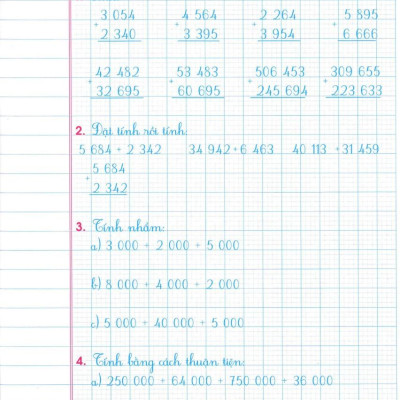 3 054 4 564 2 264 5 895
+ + + +
2 340 3 395 3 954 6 666
42 482 53 483 506 453 309 655
+ + + +
32 695 60 695 245 694 223 633
2. Đặt tính rồi tính:
5 684 + 2 342 34 942 + 6 463 40 113 + 31 459
5 684
+
2 342
3. Tính nhẩm:
a) 3 000 + 2 000 + 5 000
b) 8 000 + 4 000 + 2 000
c) 5 000 + 40 000 + 5 000
4. Tính bằng cách thuận tiện:
a) 250 000 + 64 000 + 750 000 + 36 000